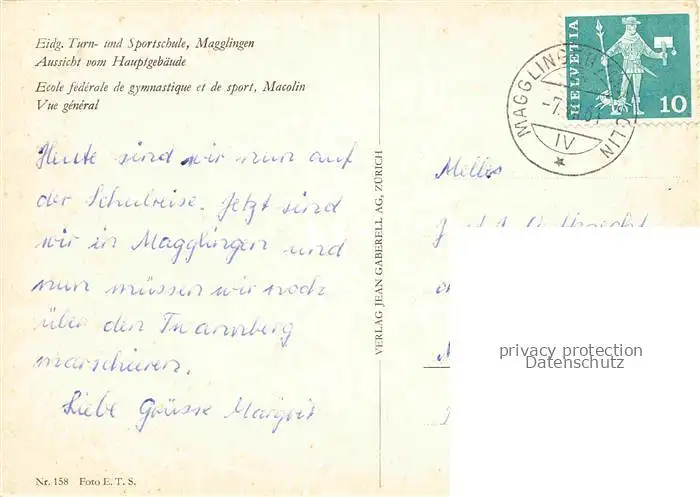 Eidg. Turn- und Sportschule, Magglingen
Aussicht vom Hauptgebäude
Ecole fédérale de gymnastique et de sport, Macolin
Vue général
Heute sind wir nun auf
der Schulreise. Jetzt sind
wir in Magglingen und
nun müssen wir noch
über den Twannberg
marschieren.
Liebe Grüsse Margrit
Nr. 158 Foto E. T. S.
VERLAG JEAN GABERELL AG, ZÜRICH
HELVETIA
10
MAGGLINGEN
IV
privacy protection
Datenschutz